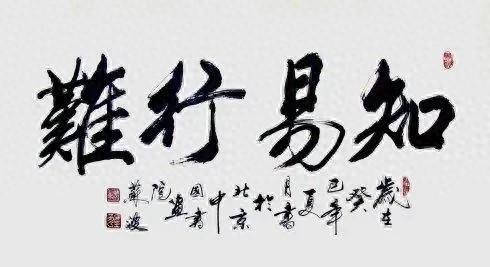 知易行難
歲在癸巳年夏月書於北京中国書畫院蘇波